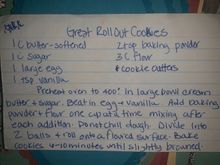 Great Rollout Cookies
1 C butter-softened 2 tsp baking powder
1 C sugar 3 C flour
1 large egg * cookie cutters
1 tsp vanilla
Preheat oven to 400° in large bowl cream
butter + sugar. Beat in egg + vanilla. Add baking
powder + flour one cup at a time mixing after
each addition. Do not chill dough. Divide into
2 balls + roll onto floured surface. Bake
cookies 6-10 minutes until slightly browned.